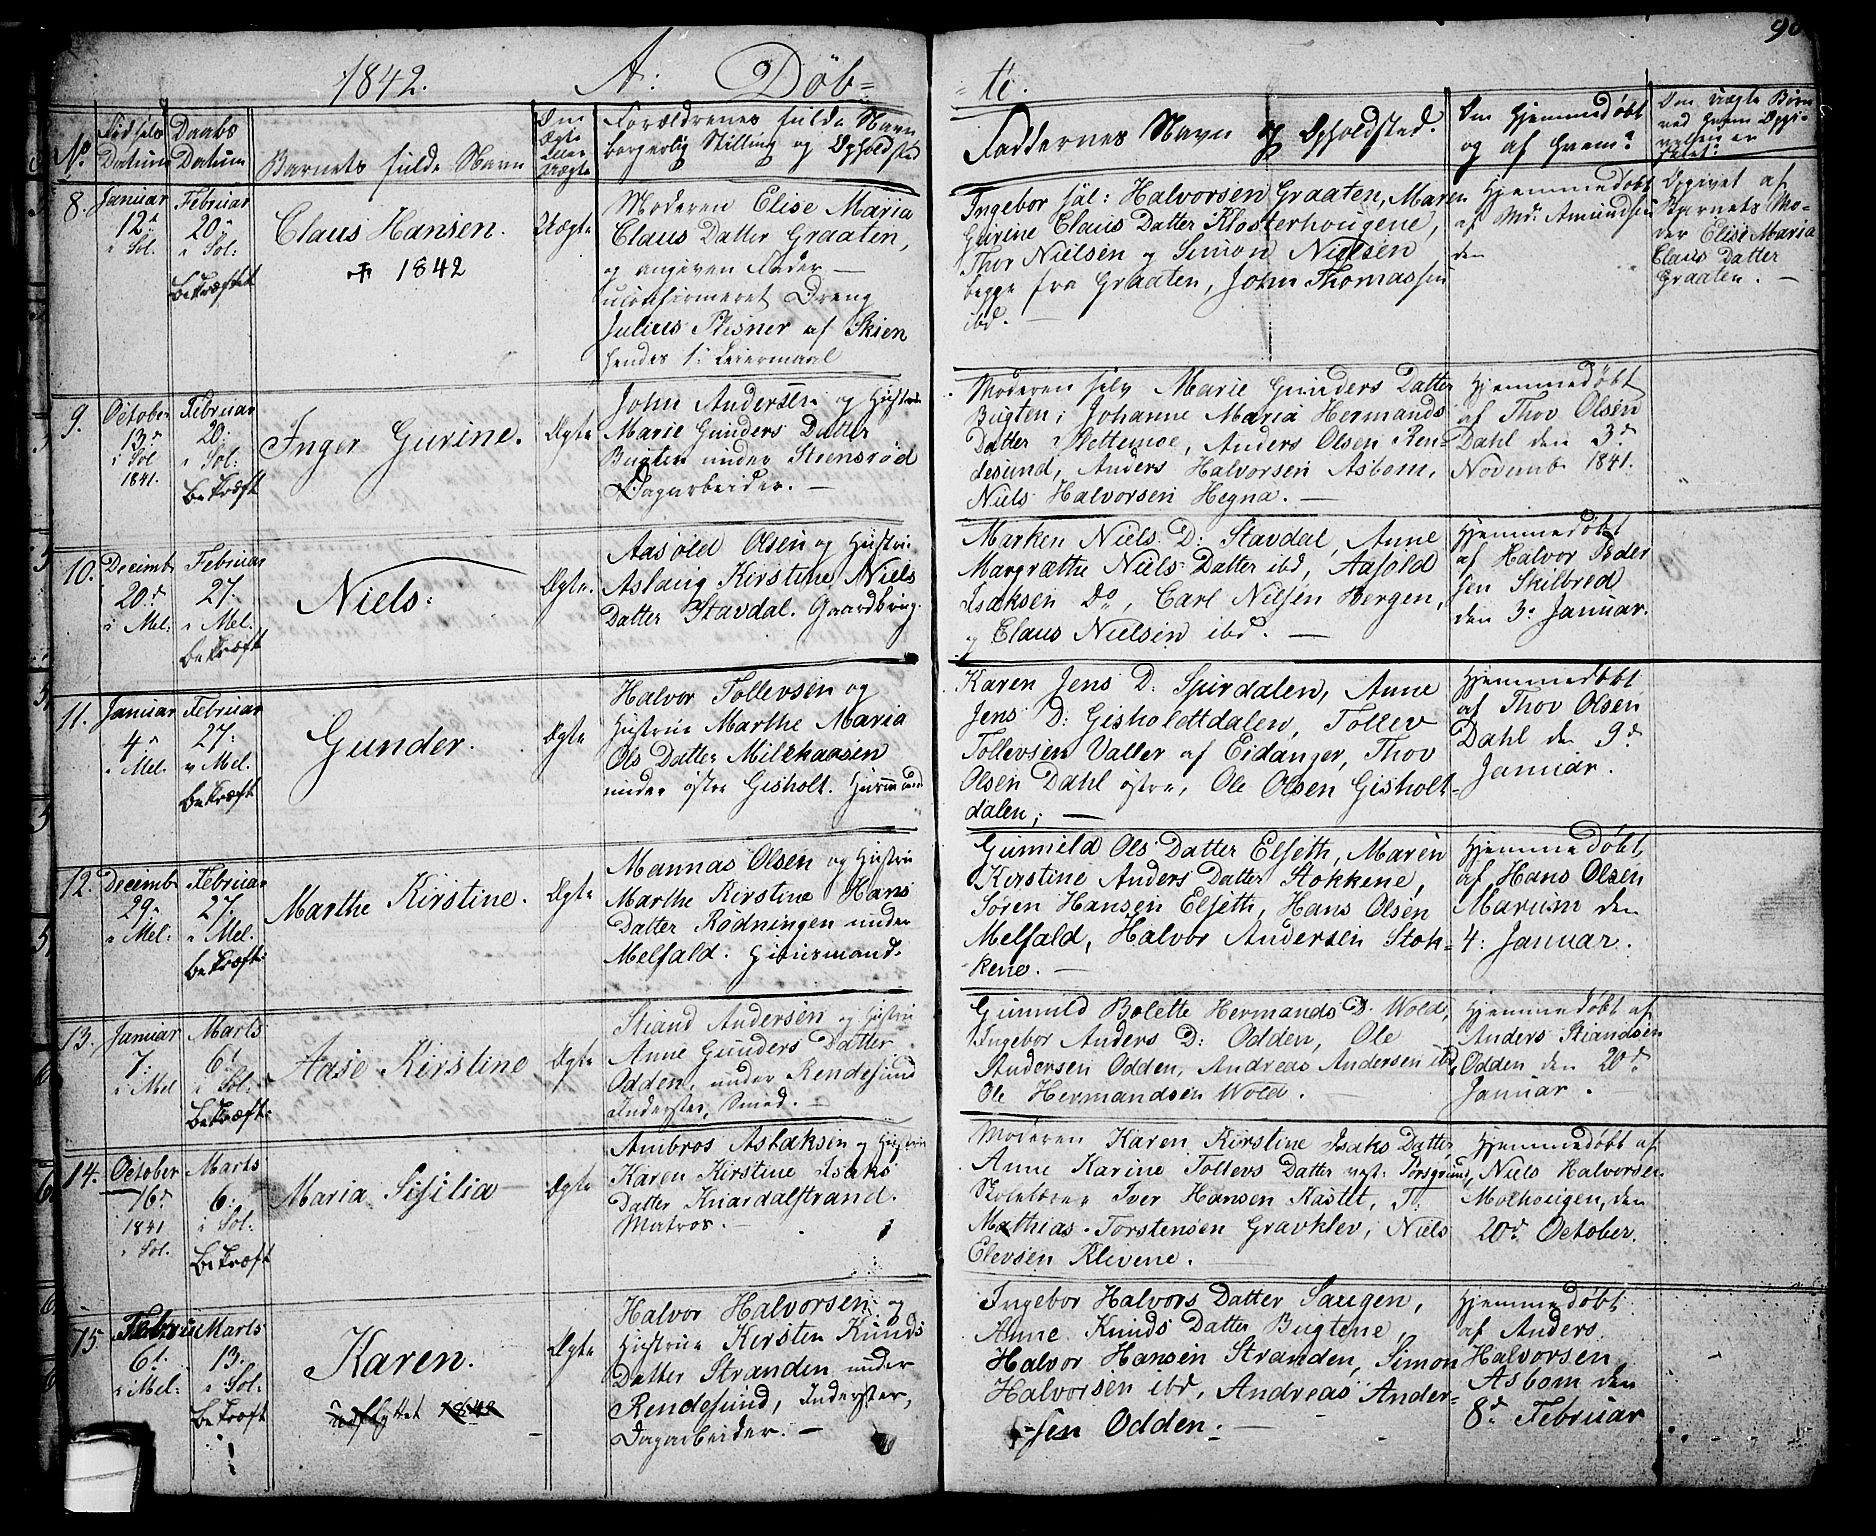 90
1842. A: Døb-
-te.
No.
Fødsels Datum
Daabs Datum
Barnets fulde Navn
Om Ægte Eller Uægte
Forældrenes fulde Navn
borgerlig Stilling og Opholdsted
Faddernes Navn og Opholdsted.
Om Hjemmedøbt
og af hvem?
8.
Januar
12te
i Sol.
Februar
20de
i Sol:
bekræftet
Claus Hansen.
1842
Uægte
Moderen Elise Maria
Claus Datter Graaten,
og angiven Fader —
uconfirmeret Dreng
Julius Plesner af Skien
hendes 1: Leiermaal
Ingebor Halvorsen Graaten, Maren
Gurine Claus Datter Klosterhougene,
Thor Nielsen og Simon Nielsen
begge fra Graaten, John Thomassen
ibd. —
Hjemmedøbt
af Md. Amundsen
den
Opgivet af
Barnets Mo-
der Elise Maria
Claus Datter
Graaten. —
9.
October
13de
i Sol
1841.
Februar
20.
i Sol:
bekræft
Inger Gurine.
Ægte
John Andersen og Hustru
Marie Gunders Datter
Bugten under Steensrød
Dagarbeider. —
Moderen selv Marie Gunders Datter
Bugten, Johanne Maria Hermands
Datter Slettemoe, Anders Olsen Ren-
desund, Anders Halvorsen Asbom,
Niels Halvorsen Hegna. —
Hjemmedøbt
af Thov Olsen
Dahl den 3de
Novembr 1841.
10.
Decembr
20de
i Mel:
Februar
27.
i Mel.
bekræft
Niels.
Ægte.
Aasold Olsen og Hustru
Aslaug Kirstine Niels
Datter Stavdal. Gaardbrug.
Marken Niels D: Stavdal, Anne
Margræthe Niels Datter ibd, Aasold
Isaksen Do, Carl Nilsen Hergen,
og Claus Nielsen ibd. —
Hjemmedøbt
af Halvor Peder
sen Skilbred
den 3. Januar.
11.
Januar
4de
i Mel.
Februar
27.
i Mel.
bekræft
Gunder.
Ægte
Halvor Tollevsen og
Hustrue Marthe Maria
Ols Datter Milekaasen
under østre Gisholt. Huusmand
Karen Jens D: Spirdalen, Anne
Jens D: Gisholdtdalen, Tollev
Tollevsen Valler af Eidanger, Thov
Olsen Dahl østre, Ole Olsen Gisholt-
dalen; —
Hjemmedøbt
af Thov Olsen
Dahl den 9de
Januar.
12.
Decembr
29de
i Mel:
Februar
27.
i Mel.
bekræft:
Marthe Kirstine.
Ægte
Mannas Olsen og Hustru
Marthe Kirstine Hans
Datter Rødningen under
Melfald. Huusmand.
Gunnild Ols Datter Elseth, Maren
Kirstine Anders Datter Stokkene,
Søren Hansen Elseth, Hans Olsen
Melfald, Halvor Andersen Stok-
kene. —
Hjemmedøbt
af Hans Olsen
Marum den
4: Januar.
13.
Januar
7.
i Mel
Marts
6t.
i Sol:
bekræft:
Aase Kirstine
Ægte
Stiand Andersen og Hustru
Anne Gunders Datter
Odden, under Rendesund
Inderster, Smed. —
Gunnild Bolette Hermands D. Wold,
Ingebor Anders D: Odden, Ole
Andersen Odden, Andreas Andersen ibd,
Ole Hermandsen Wold. —
Hjemmedøbt af
Anders Stiandsen
Odden den 20de
Januar.
14.
October
16de
1841
i Sol.
Marts
6.
i Sol:
bekræft
Maria Sisilia
Ægte
Ambros Aslaksen og Hustru
Karen Kirstine Isaks
Datter Knardalstrand.
Matros. —
Moderen Karen Kirstine Isaks Datter,
Anne Karine Tollevs Datter vest: Porsgrund,
Skolelærer Iver Hansen Kastet, T:
Mathias Torstensen Gravklev, Niels
Elevsen Klevene.
Hjemmedøbt af
Niels Halvorsen
Molhougen, den
20de October.
15.
Februar
6t.
i Mel:
Marts
13.
i Sol:
bekræft
Karen.
udflyttet 1842
Ægte
Halvor Halvorsen og
Hustrue Kirsten Knuds
Datter Stranden under
Rendesund, Inderster,
Dagarbeider. —
Ingebor Halvors Datter Saugen,
Anne Knuds Datter Bugtene,
Halvor Hansen Stranden, Simon
Halvorsen ibd, Andreas Ander-
-sen Odden. —
Hjemmedøbt
af Anders
Halvorsen
Asbom den
8de Februar